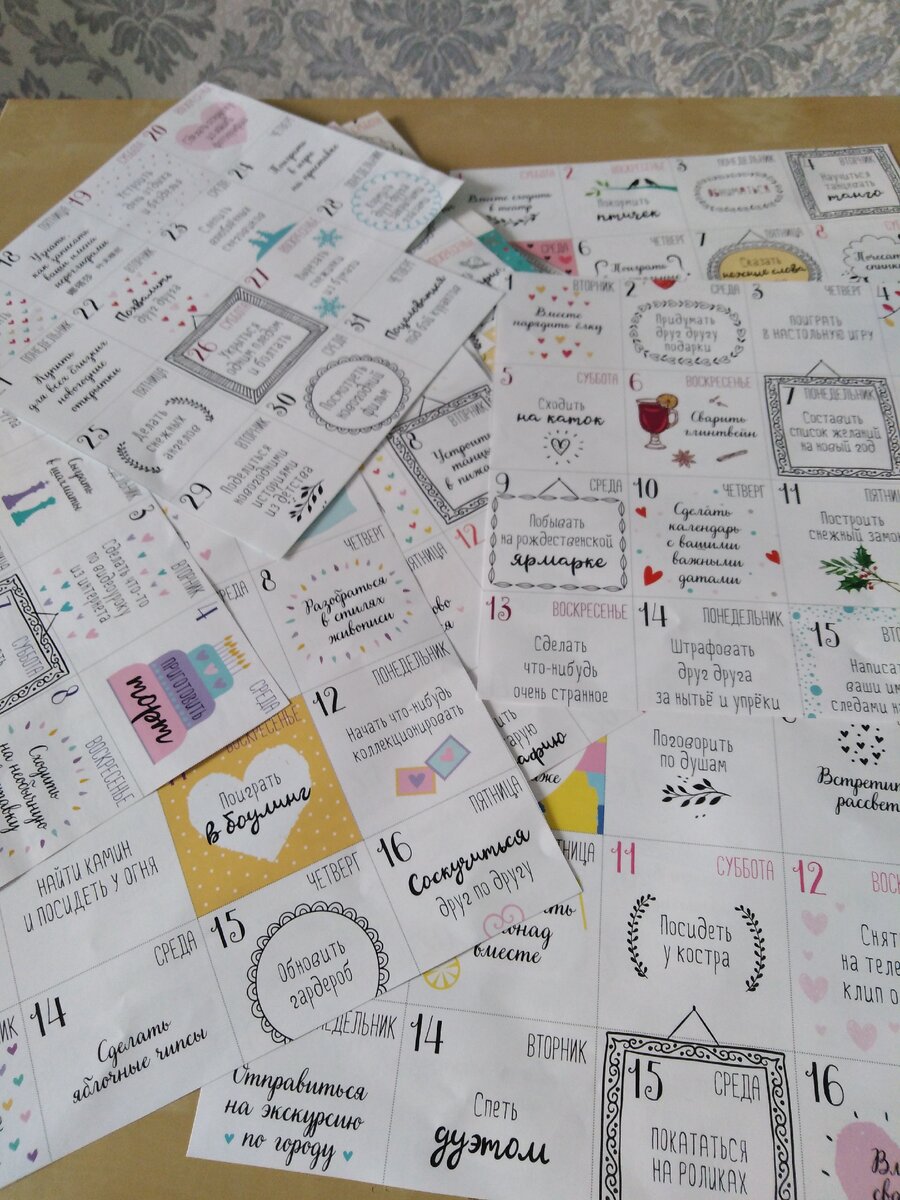 20
19
СУББОТА
ПЯТНИЦА
Устроить
день отдыха
и безделья
24
ЧЕТВЕРГ
Поиграть
в игры
на приставке
18
Узнать
как звучат
ваши имена
иероглифами
23
СРЕДА
28
ПОНЕДЕЛЬНИК
22
ВТОРНИК
Похвалить
друг друга
27
ВОСКРЕСЕНЬЕ
Вырезать
снежинки
из бумаги
ПОНЕДЕЛЬНИК
Купить
для всех близких
новогодние
открытки
26
СУББОТА
Укрыться
одним пледом
и болтать
31
ЧЕТВЕРГ
Поцеловаться
под бой курантов
25
ПЯТНИЦА
Делать
снежных
ангелов
30
СРЕДА
Посмотреть
новогодний
фильм
29
ВТОРНИК
Поделиться
новогодними
историями
из детства
СУББОТА
Вместе сходить
в театр
2
ВОСКРЕСЕНЬЕ
Покормить
птичек
3
ПОНЕДЕЛЬНИК
Обниматься
4
ВТОРНИК
Научиться
танцевать
танго
СРЕДА
6
ЧЕТВЕРГ
Поиграть
7
ПЯТНИЦА
Сказать
нежные слова
8
Почесать
спинку
1
ВТОРНИК
Вместе
нарядить ёлку
2
СРЕДА
Придумать
друг другу
подарки
3
ЧЕТВЕРГ
ПОИГРАТЬ
В НАСТОЛЬНУЮ ИГРУ
4
5
СУББОТА
Сходить
на каток
6
ВОСКРЕСЕНЬЕ
Сварить
глинтвейн
7
ПОНЕДЕЛЬНИК
Составить
список желаний
на новый год
9
СРЕДА
Побывать
на рождественской
ярмарке
10
ЧЕТВЕРГ
Сделать
календарь
с вашими
важными
датами
11
Построить
снежный замок
13
ВОСКРЕСЕНЬЕ
Сделать
что-нибудь
очень странное
14
ПОНЕДЕЛЬНИК
Штрафовать
друг друга
за нытьё и упрёки
15
8
ВТОРНИК
Устроить
танцы
12
ПЯТНИЦА
Сыграть
в шахматы
3
ВТОРНИК
Сделать что-то
по видеоуроку
из интернета
4
СРЕДА
ПРИГОТОВИТЬ
торт
7
СУББОТА
8
ВОСКРЕСЕНЬЕ
Сходить
на необычную
СРЕДА
8
ЧЕТВЕРГ
Разобраться
в стилях
живописи
ВОСКРЕСЕНЬЕ
Поиграть
в боулинг
12
ПОНЕДЕЛЬНИК
Начать что-нибудь
коллекционировать
НАЙТИ КАМИН
И ПОСИДЕТЬ У ОГНЯ
СРЕДА
15
ЧЕТВЕРГ
Обновить
гардероб
16
ПЯТНИЦА
Соскучиться
друг по другу
14
Сделать
яблочные чипсы
Поговорить
по душам
11
СУББОТА
Посидеть
у костра
12
на теле
клип о
вместе
Отправиться
на экскурсию
по городу
14
ВТОРНИК
Спеть
дуэтом
15
СРЕДА
ПОКАТАТЬСЯ
НА РОЛИКАХ
16